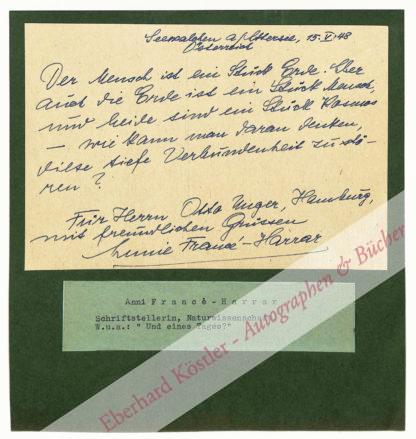 Seewalchen a/Attersee, 15.V.48
Österreich
Der Mensch ist ein Stück Erde. Aber
auch die Erde ist ein Stück Mensch,
und beide sind ein Stück Kosmos
— wie kann man daran denken,
diese tiefe Verbundenheit zu stö-
ren?
Für Herrn Otto Unger, Hamburg,
mit freundlichen Grüssen
Annie Francé-Harrar
Anni Francè-Harrar
Schriftstellerin, Naturwissenschaft
W.u.a.: "Und eines Tages?"
Eberhard Köstler - Autographen & Bücher